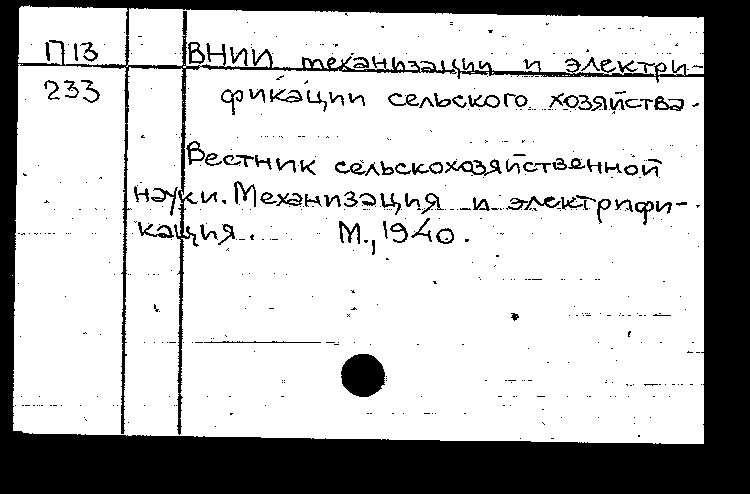 П13 ВНИИ механизации и электри-
233 фикации сельского хозяйства.
Вестник сельскохозяйственной
науки. Механизация и электрифи-
кация. М., 1940.